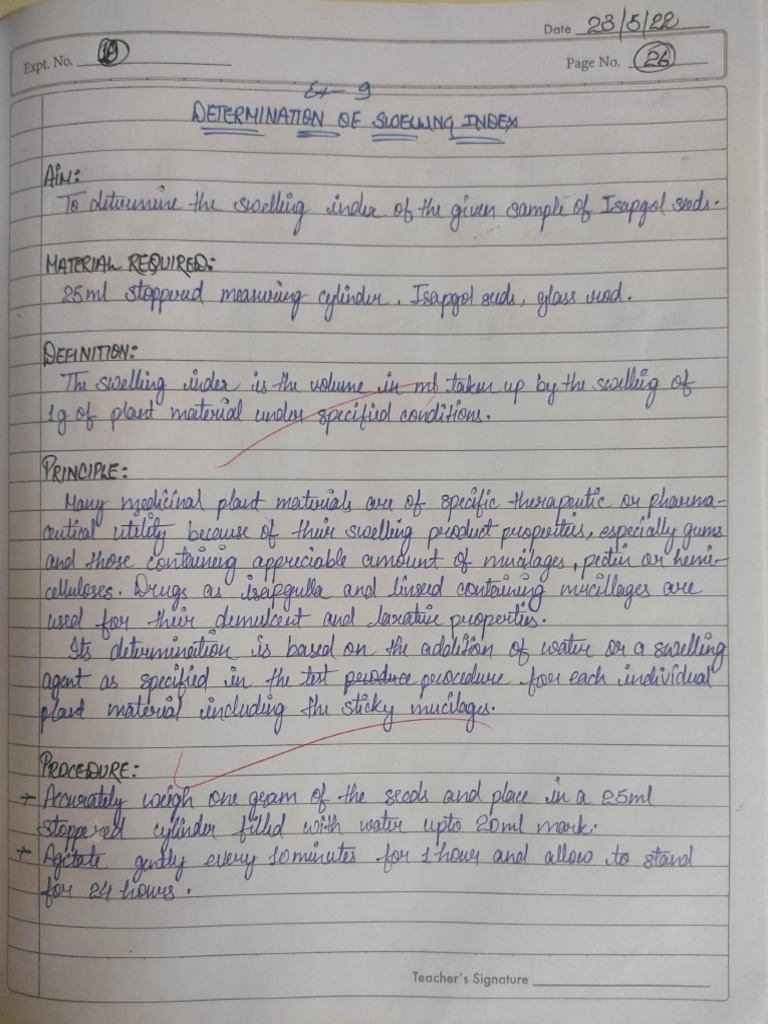 Date 23/5/22
Expt. No. 10
Page No. 26
Ex- 9
DETERMINATION OF SWELLING INDEX
AIM:
To determine the swelling index of the given sample of Isapgol seeds.
MATERIAL REQUIRED:
25ml stoppered measuring cylinder, Isapgol seeds, glass rod.
DEFINITION:
The swelling index is the volume in ml taken up by the swelling of
1g of plant material under specified conditions.
PRINCIPLE:
Many medicinal plant materials are of specific therapeutic or pharma-
ceutical utility because of their swelling product properties, especially gums
and those containing appreciable amount of mucilages, pectin or hemi-
celluloses. Drugs as isapgulla and linseed containing mucillages are
used for their demulcent and laxative properties.
Its determination is based on the addition of water or a swelling
agent as specified in the test produce procedure for each individual
plant material including the sticky mucilages.
PROCEDURE:
→ Accurately weigh one gram of the seeds and place in a 25ml
stoppered cylinder filled with water upto 20ml mark.
→ Agitate gently every 10minutes for 1hour and allow to stand
for 24 hours.
Teacher's Signature